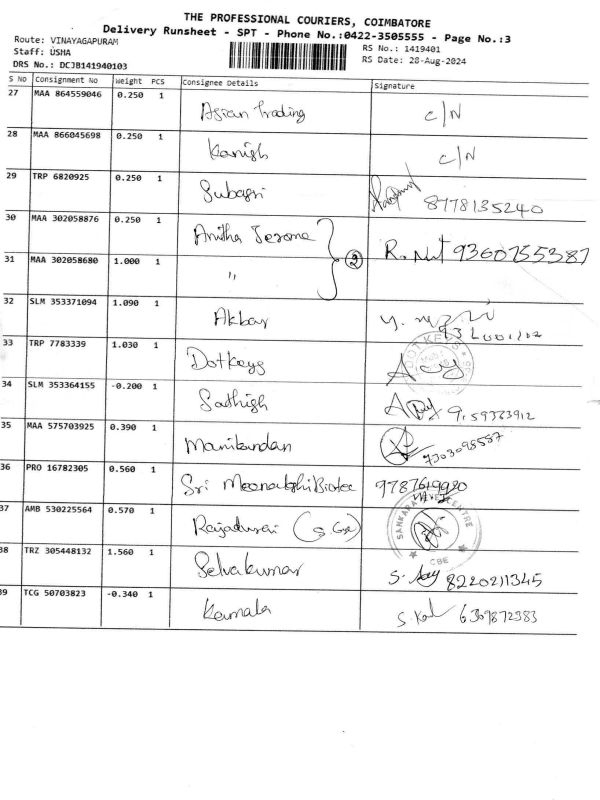 THE PROFESSIONAL COURIERS, COIMBATORE
Delivery Runsheet - SPT - Phone No.:0422-3505555 - Page No.:3
Route: VINAYAGAPURAM
Staff: USHA
DRS No.: DCJB141940103
RS No.: 1419401
RS Date: 28-Aug-2024
S No Consignment No Weight PCS Consignee Details Signature
27 MAA 864559046 0.250 1 Asian Trading C/N
28 MAA 866045698 0.250 1 Kanish C/N
29 TRP 6820925 0.250 1 Subasri 8778135240
30 MAA 302058876 0.250 1 Anitha Jerome 2 9360755387
31 MAA 302058680 1.000 1 "
32 SLM 353371094 1.090 1 Akbar
33 TRP 7783339 1.030 1 Dotkeys
34 SLM 353364155 -0.200 1 Sathish 9159363912
35 MAA 575703925 0.390 1 Manikandan 7303098587
36 PRO 16782305 0.560 1 Sri Meenakshi Biotec 9787649920
37 AMB 530225564 0.570 1 Rajadurai
SANKARA CENTRE
CBE
38 TRZ 305448132 1.560 1 Selvakumar 8220211345
39 TCG 50703823 -0.340 1 Kamala 6369872983